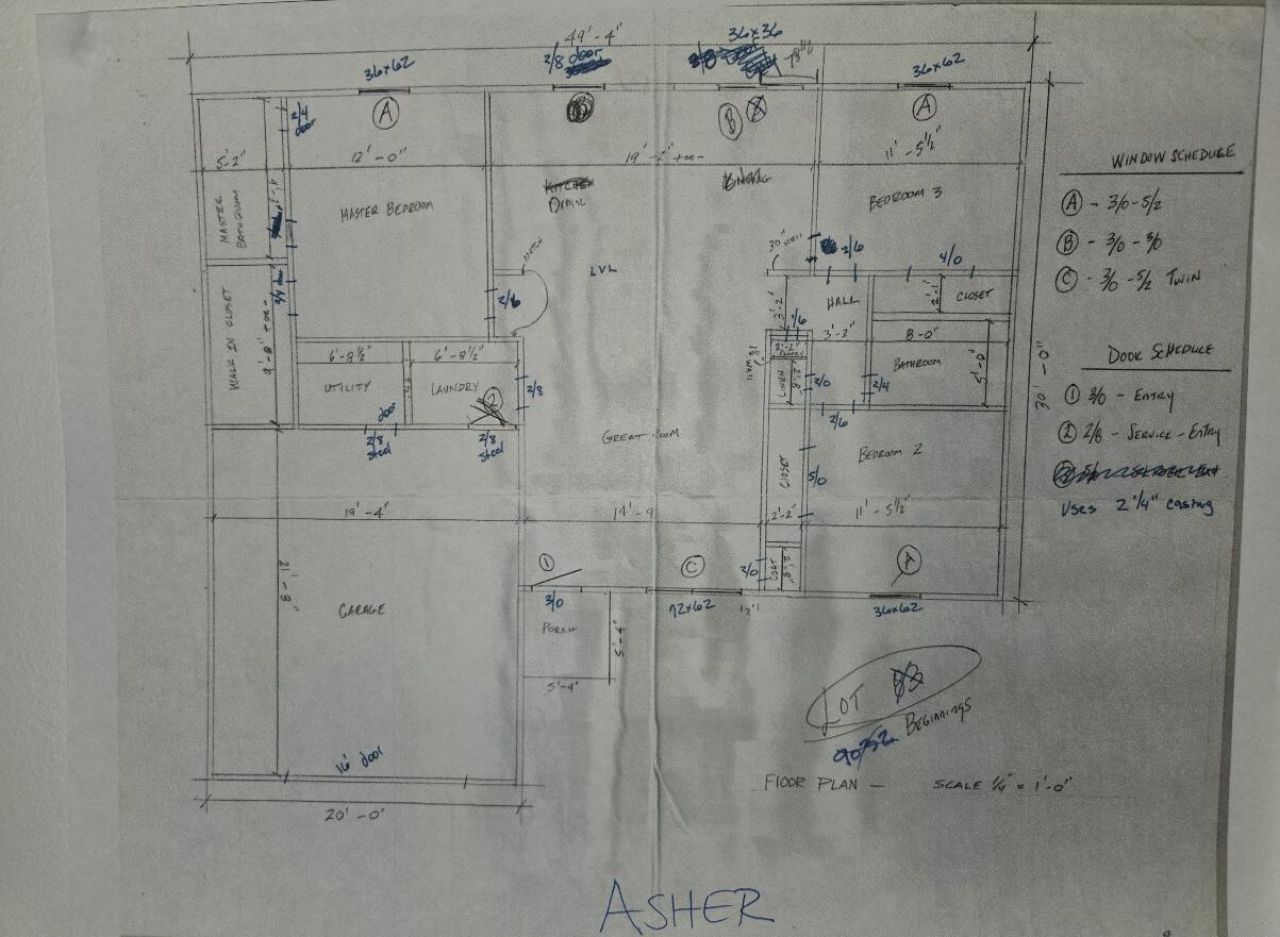 49'-4"
36x36
2/8 door
78 1/2
36x62
36x62
A
B
A
2/4
door
5'-2"
12'-0"
19'-2" +or-
11'-5 1/2"
MASTER
BATHROOM
MASTER BEDROOM
DINING
BEDROOM 3
30" WALL
2/6
4/0
LVL
2/6
HALL
2'-1"
CLOSET
3'-2"
3'-2"
8'-0"
WALK IN CLOSET
9'-8" +or-
6'-8 1/2"
6'-8 1/2"
UTILITY
LAUNDRY
2
2/8
2'-2"
LINEN
2/0
2/4
BATHROOM
5'-0"
door
2/8
Steel
2/8
Steel
2/6
GREAT ROOM
BEDROOM 2
CLOSET
5/0
19'-4"
14'-9
2'-2"
11'-5 1/2"
21'-8"
1
C
2/0
COAT
A
3/0
72x62
36x62
GARAGE
PORCH
5'-4"
5'-4"
16' door
20'-0"
30'-0"
WINDOW SCHEDULE
A - 3/0-5/2
B - 3/0-3/0
C - 3/0-5/2 TWIN
DOOR SCHEDULE
1 3/0 - ENTRY
2 2/8 - SERVICE-ENTRY
Uses 2 1/4" casing
LOT
BEGINNINGS
FLOOR PLAN — SCALE 1/4" = 1'-0"
ASHER